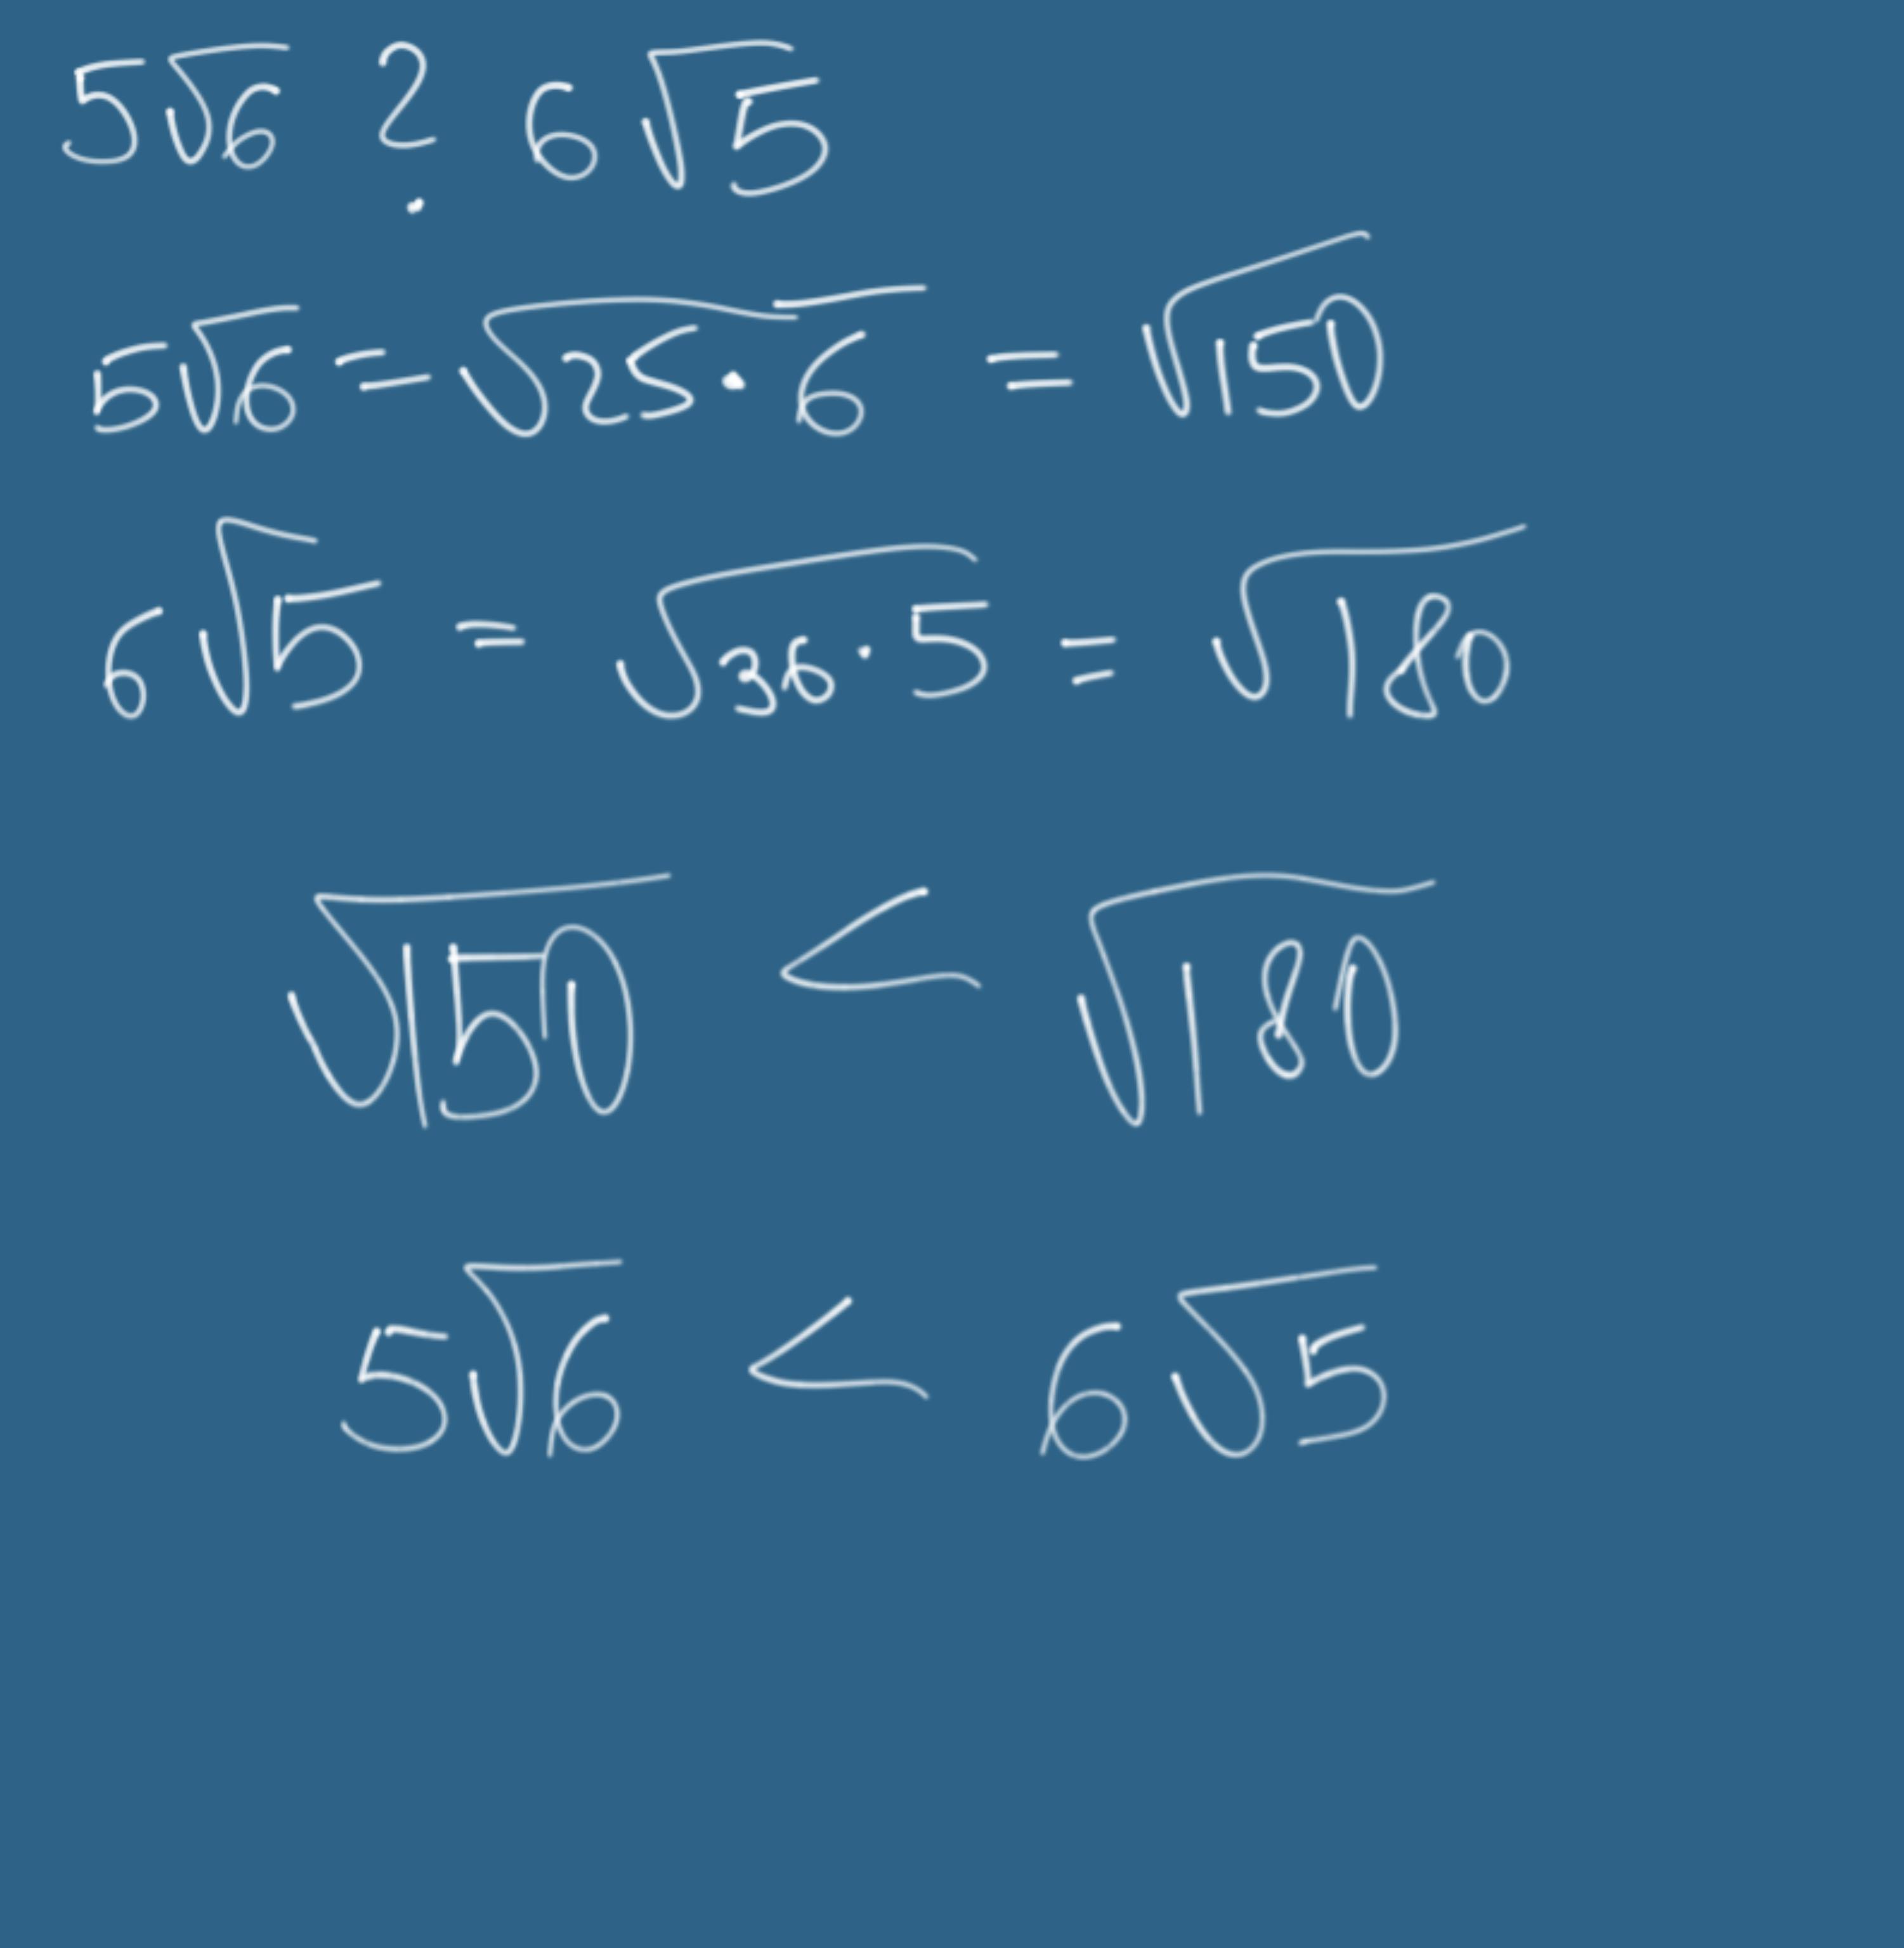 5√6 ? 6√5
5√6 = √25·6 = √150
6√5 = √36·5 = √180
√150 < √180
5√6 < 6√5